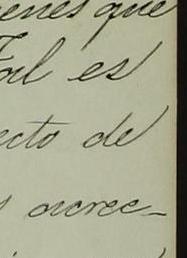 enes que
Tal es
ecto de
s acree-